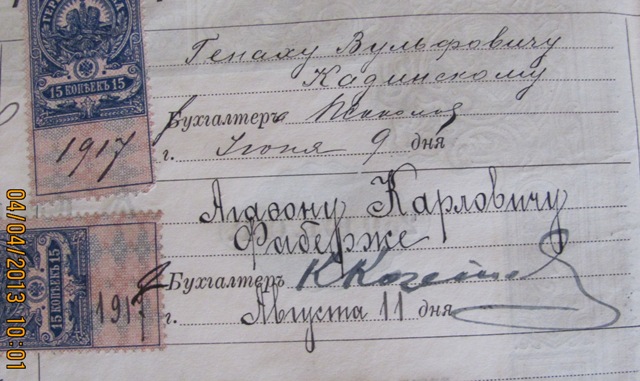 ГЕРБОВАЯ МАРКА
15 КОПѢЕКЪ 15
1917 г.
Генаху Вульфовичу
Кадинскому
Бухгалтеръ
Іюня 9 дня
15 КОПѢЕКЪ 15
1917 г.
Агавону Карловичу
Фаберже
Бухгалтеръ
Августа 11 дня
04/04/2013 10:01